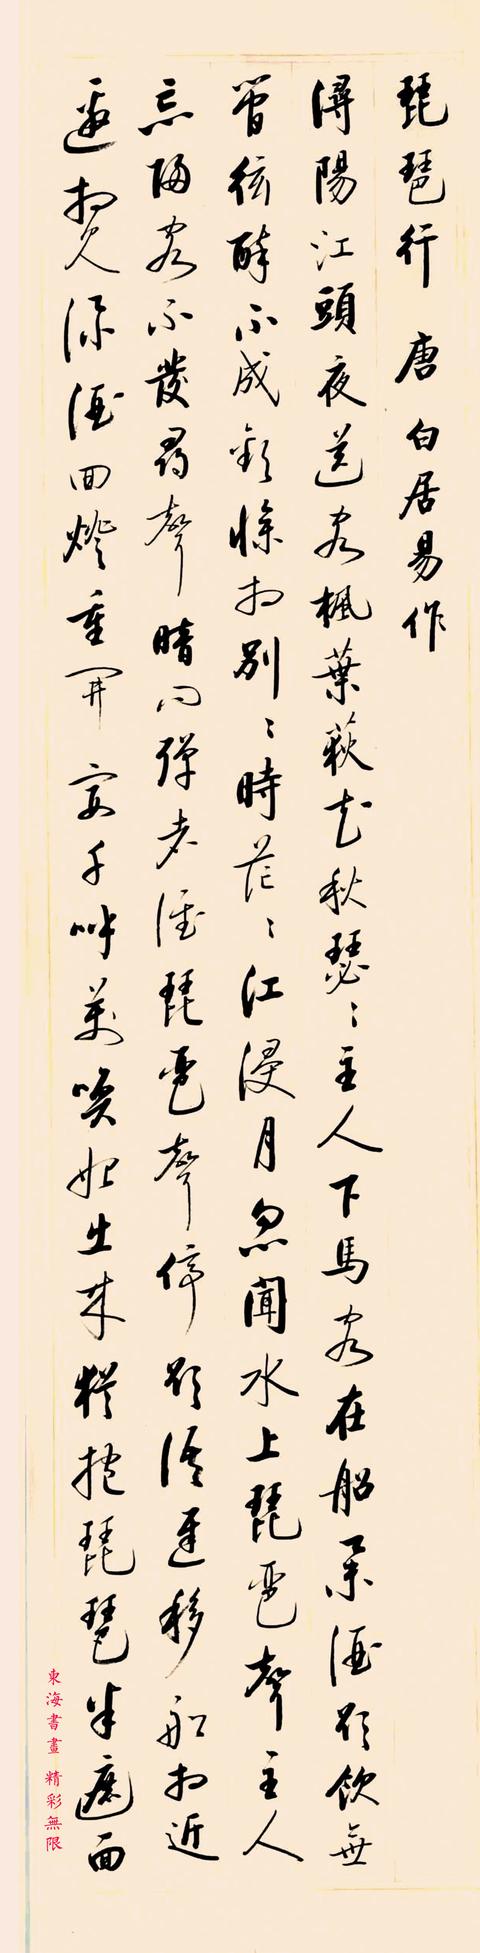 琵琶行 唐 白居易作
潯陽江頭夜送客楓葉荻花秋瑟〻主人下馬客在船舉酒欲飲無
管絃醉不成歡慘相別〻時茫〻江浸月忽聞水上琵琶聲主人
忘歸客不發尋聲暗問彈者誰琵琶聲停欲語遲移船相近
邀相見添酒回燈重開宴千呼萬喚始出來猶抱琵琶半遮面
東海書畫 精彩無限